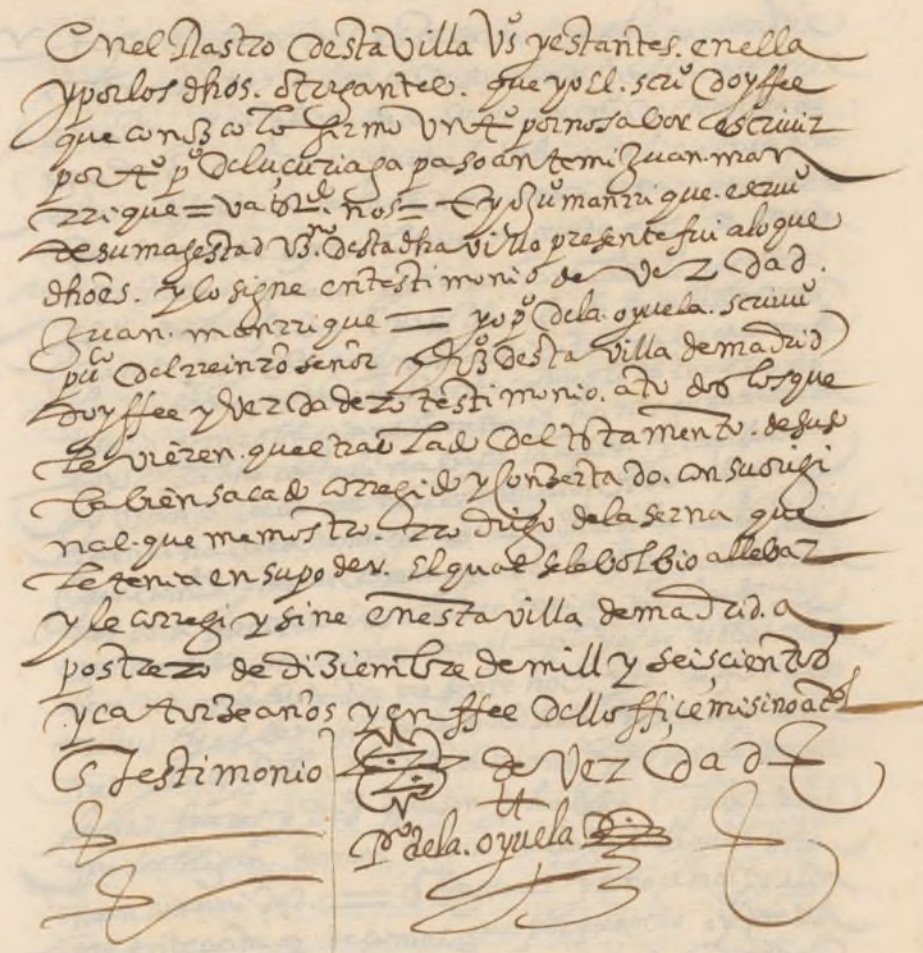 en el Rastro desta villa vº y estantes. en ella
y por los dhos. otorgantes. que yo ell. scrivº doy ffee
que conozco lo firmo un tº por no saber escrivir
por tº pº de luçuriaga paso ante mi Juan. man
rrique = va = nos = E yo Juº manrrique. escriv
de su magestad vzº desta dha villa presente fui a lo que
dho es. y lo signe en testimonio de verdad.
Juan. manrrique = yo pº de la. oyuela. scrivº
puco del rrei nrõ señor y vzº desta villa de madrid
doy ffee y verdadero testimonio. a todos los que
le vieren. que el traslado del testamento. de suso
ba bien sacado corregido y conzertado. con su origi
nal. que me mostro. diego de la serna que
le tenia en su poder. El qual se le bolbio a llebar
y le corregi y sine en esta villa de madrid. a
postrero de diziembre de mill y seiscientos
y catorze años y en ffee dello ffiçe mi sino a tal
En Testimonio de verdad
pº de la. oyuela